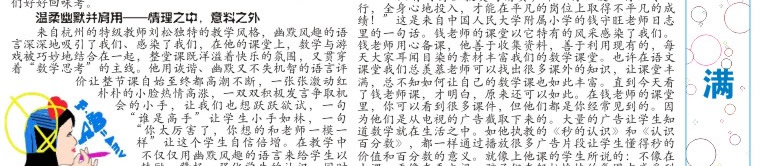 们好好回味考。
温柔幽默并肩用——情理之中，意料之外
来自杭州的特级教师刘松独特的教学风格，幽默风趣的语
言深深地吸引了我们、感染了我们，在他的课堂上，数学与游
戏被巧妙地结合在一起，整堂课既洋溢着快乐的氛围，又贯穿
着“数学思考”的主线。他用诙谐、幽默又不失机智的语言评
价让整节课自始至终都高潮不断，一张张激动红
朴朴的小脸热情高涨，一双双积极发言争取机
会的小手，让我们也想跃跃欲试，一句
“谁是高手”让学生小手如林，一句
“你太厉害了，你想的和老师一模一
样”让这个学生自信倍增。在教学中
不仅仅用幽默风趣的语言来给学生以
行，全身心地投入，才能在平凡的岗位上取得不平凡的成
绩！”这是来自中国人民大学附属小学的钱守旺老师日志
里的一句话。钱老师的课堂以它特有的风采感染了我们。
钱老师用心备课，他善于收集资料，善于利用现有的，每
天大家耳闻目染的素材丰富我们的数学课堂。也许在语文
课堂我们总羡慕老师可以找出很多课外的知识，让课堂丰
满，总不知如何让自己的数学课也如此丰富。直到今天看
了钱老师课，才明白，原来还可以如此。在钱老师的课堂
里，你可以看到很多课件，但他们都是你经常见到的。因
为他们是从电视的广告截取下来的。大量的广告让学生知
道数学就在生活之中。如他执教的《秒的认识》和《认识
百分数》，都一样通过播放很多广告片段让学生懂得秒的
价值和百分数的意义。就像上他课的学生所说的：不像在
满